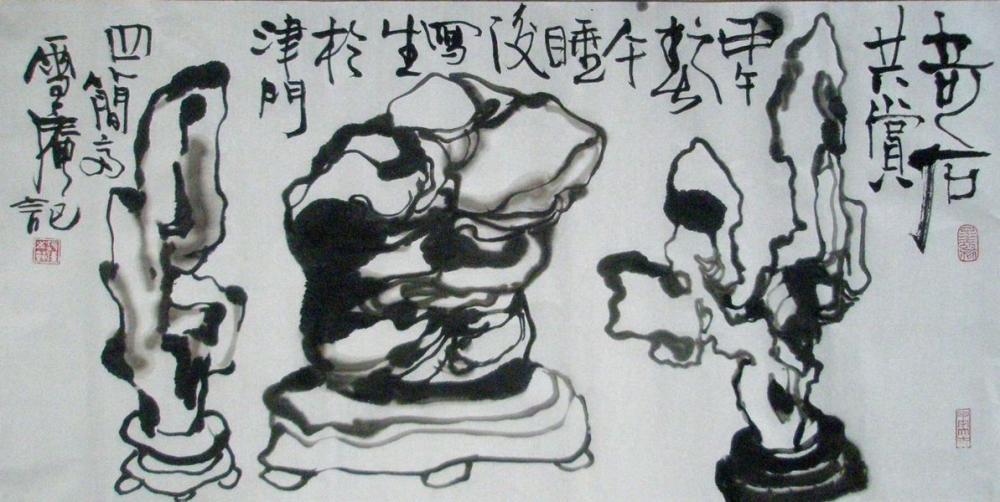 奇石
共賞
甲午
午
睡
後
寫
生
於
津門
四簡斋
雪
記